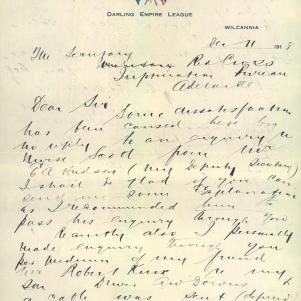 DARLING EMPIRE LEAGUE
WILCANNIA
Dec 11 1918
The Secretary
Red Cross
Information Bureau
Adelaide
Dear Sir Some dissatisfaction
has been caused here by
no reply to an enquiry re
Nurse Scott from Mr
E A Hudson (my Deputy Secretary)
I shall be glad if you can
send me some Explanation
as I recommended him to
pass his enquiry through you
Recently also I personally
made enquiry through you
per medium of my friend
Mr Robert Knox re my
son Driver
a cable was sent